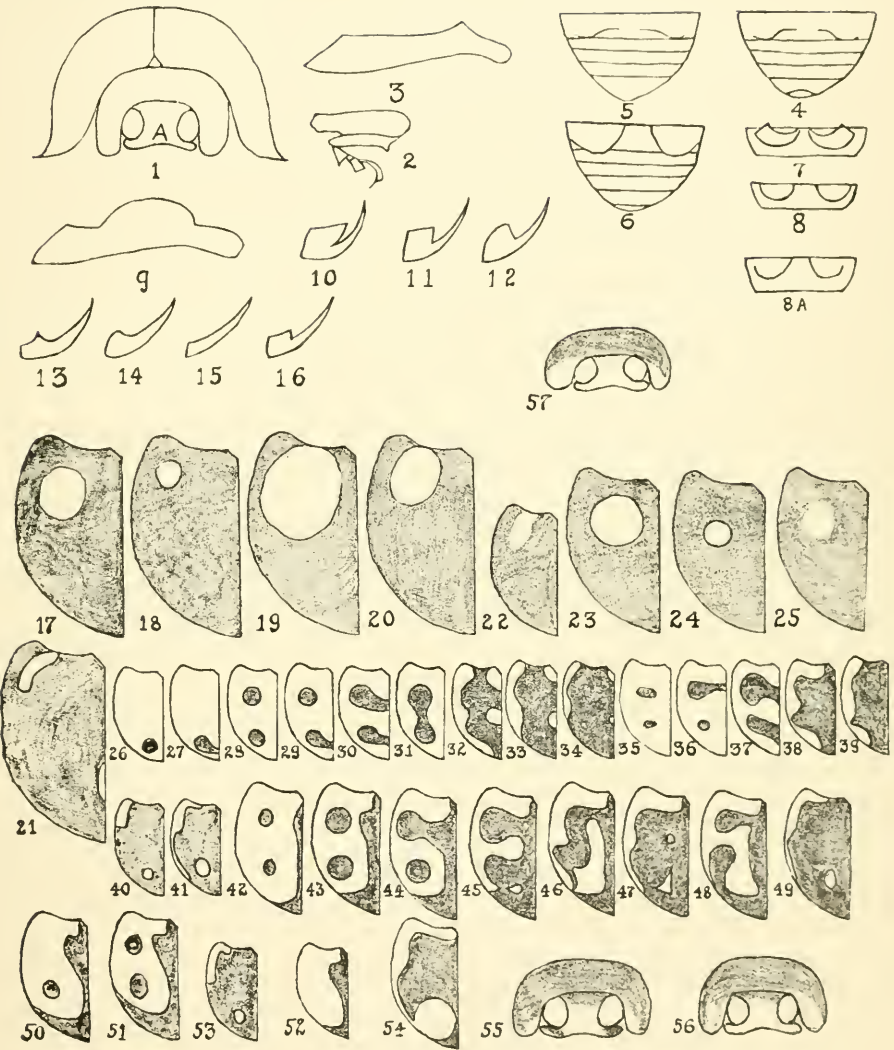 A
1
3
2
5
4
6
7
8
8A
9
10 11 12
13 14 15 16
57
17 18 19 20 22 23 24 25
21
26 27 28 29 30 31 32 33 34 35 36 37 38 39
40 41 42 43 44 45 46 47 48 49
50 51 53 52 54 55 56